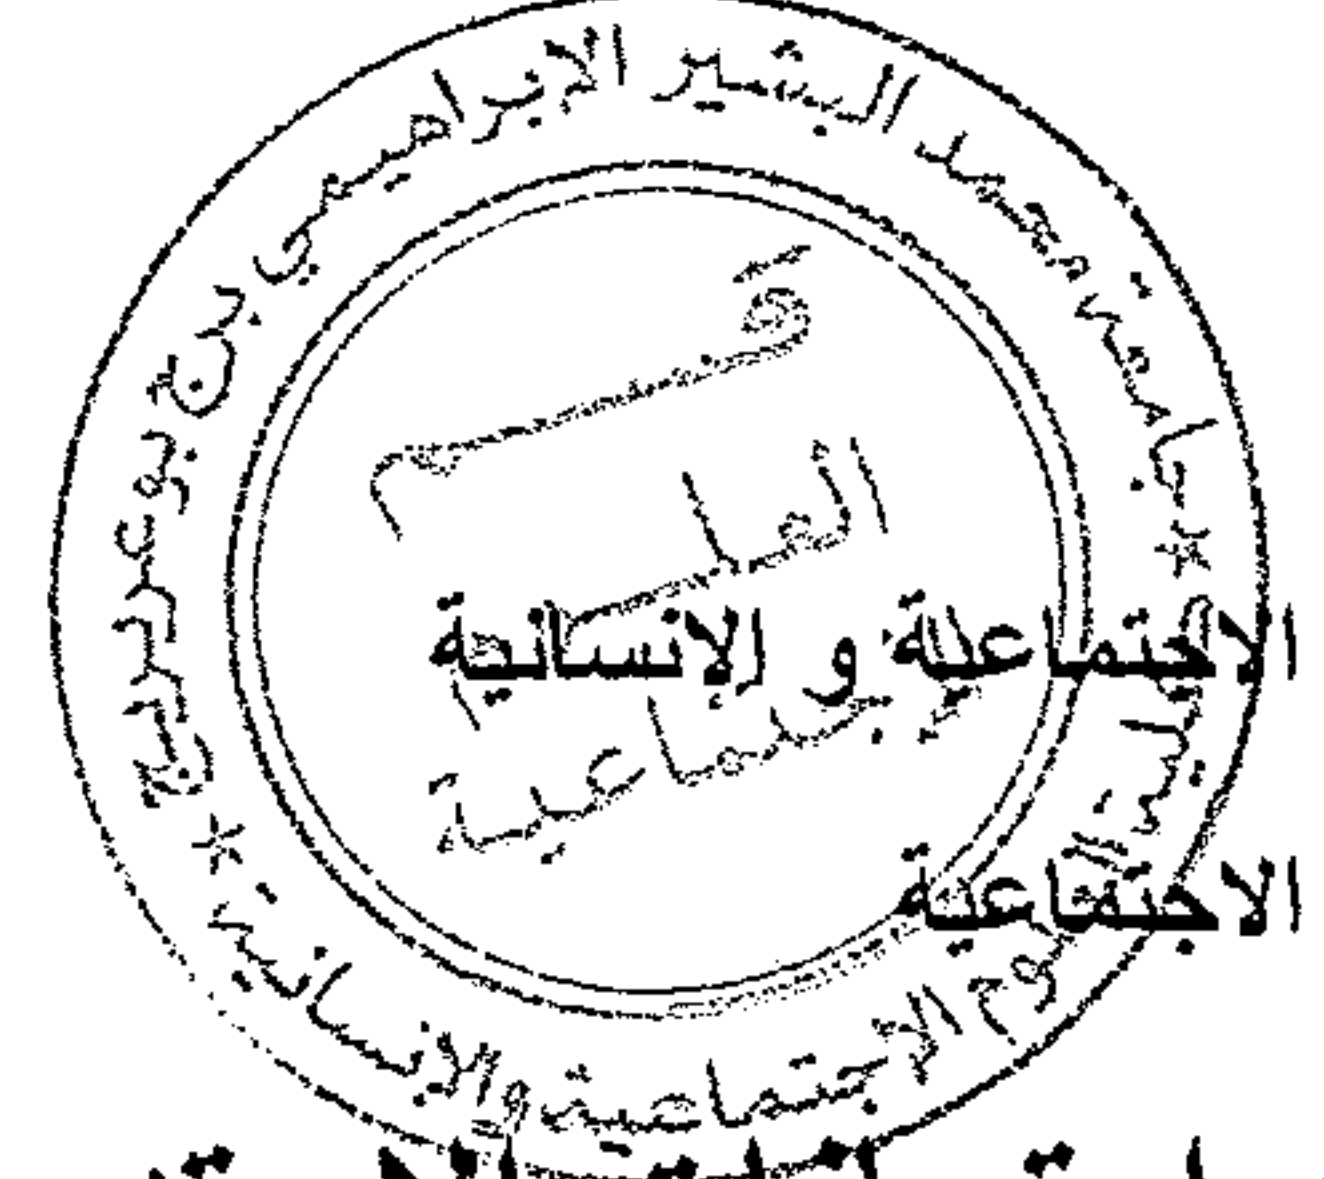 جامعة محمد البشير الإبراهيمي برج بوعريريج
كلية العلوم الاجتماعية والإنسانية
قسم
العلوم
الاجتماعية
الاجتماعية و الإنسانية
الاجتماعية